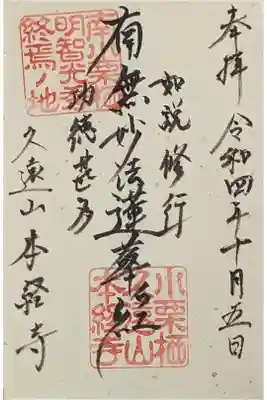 奉拝 令和四年十月五日
如説修行
南無妙法蓮華経
功徳甚多
久遠山 本経寺
明智光秀
終焉ノ地
小栗栖
久遠山
本経寺